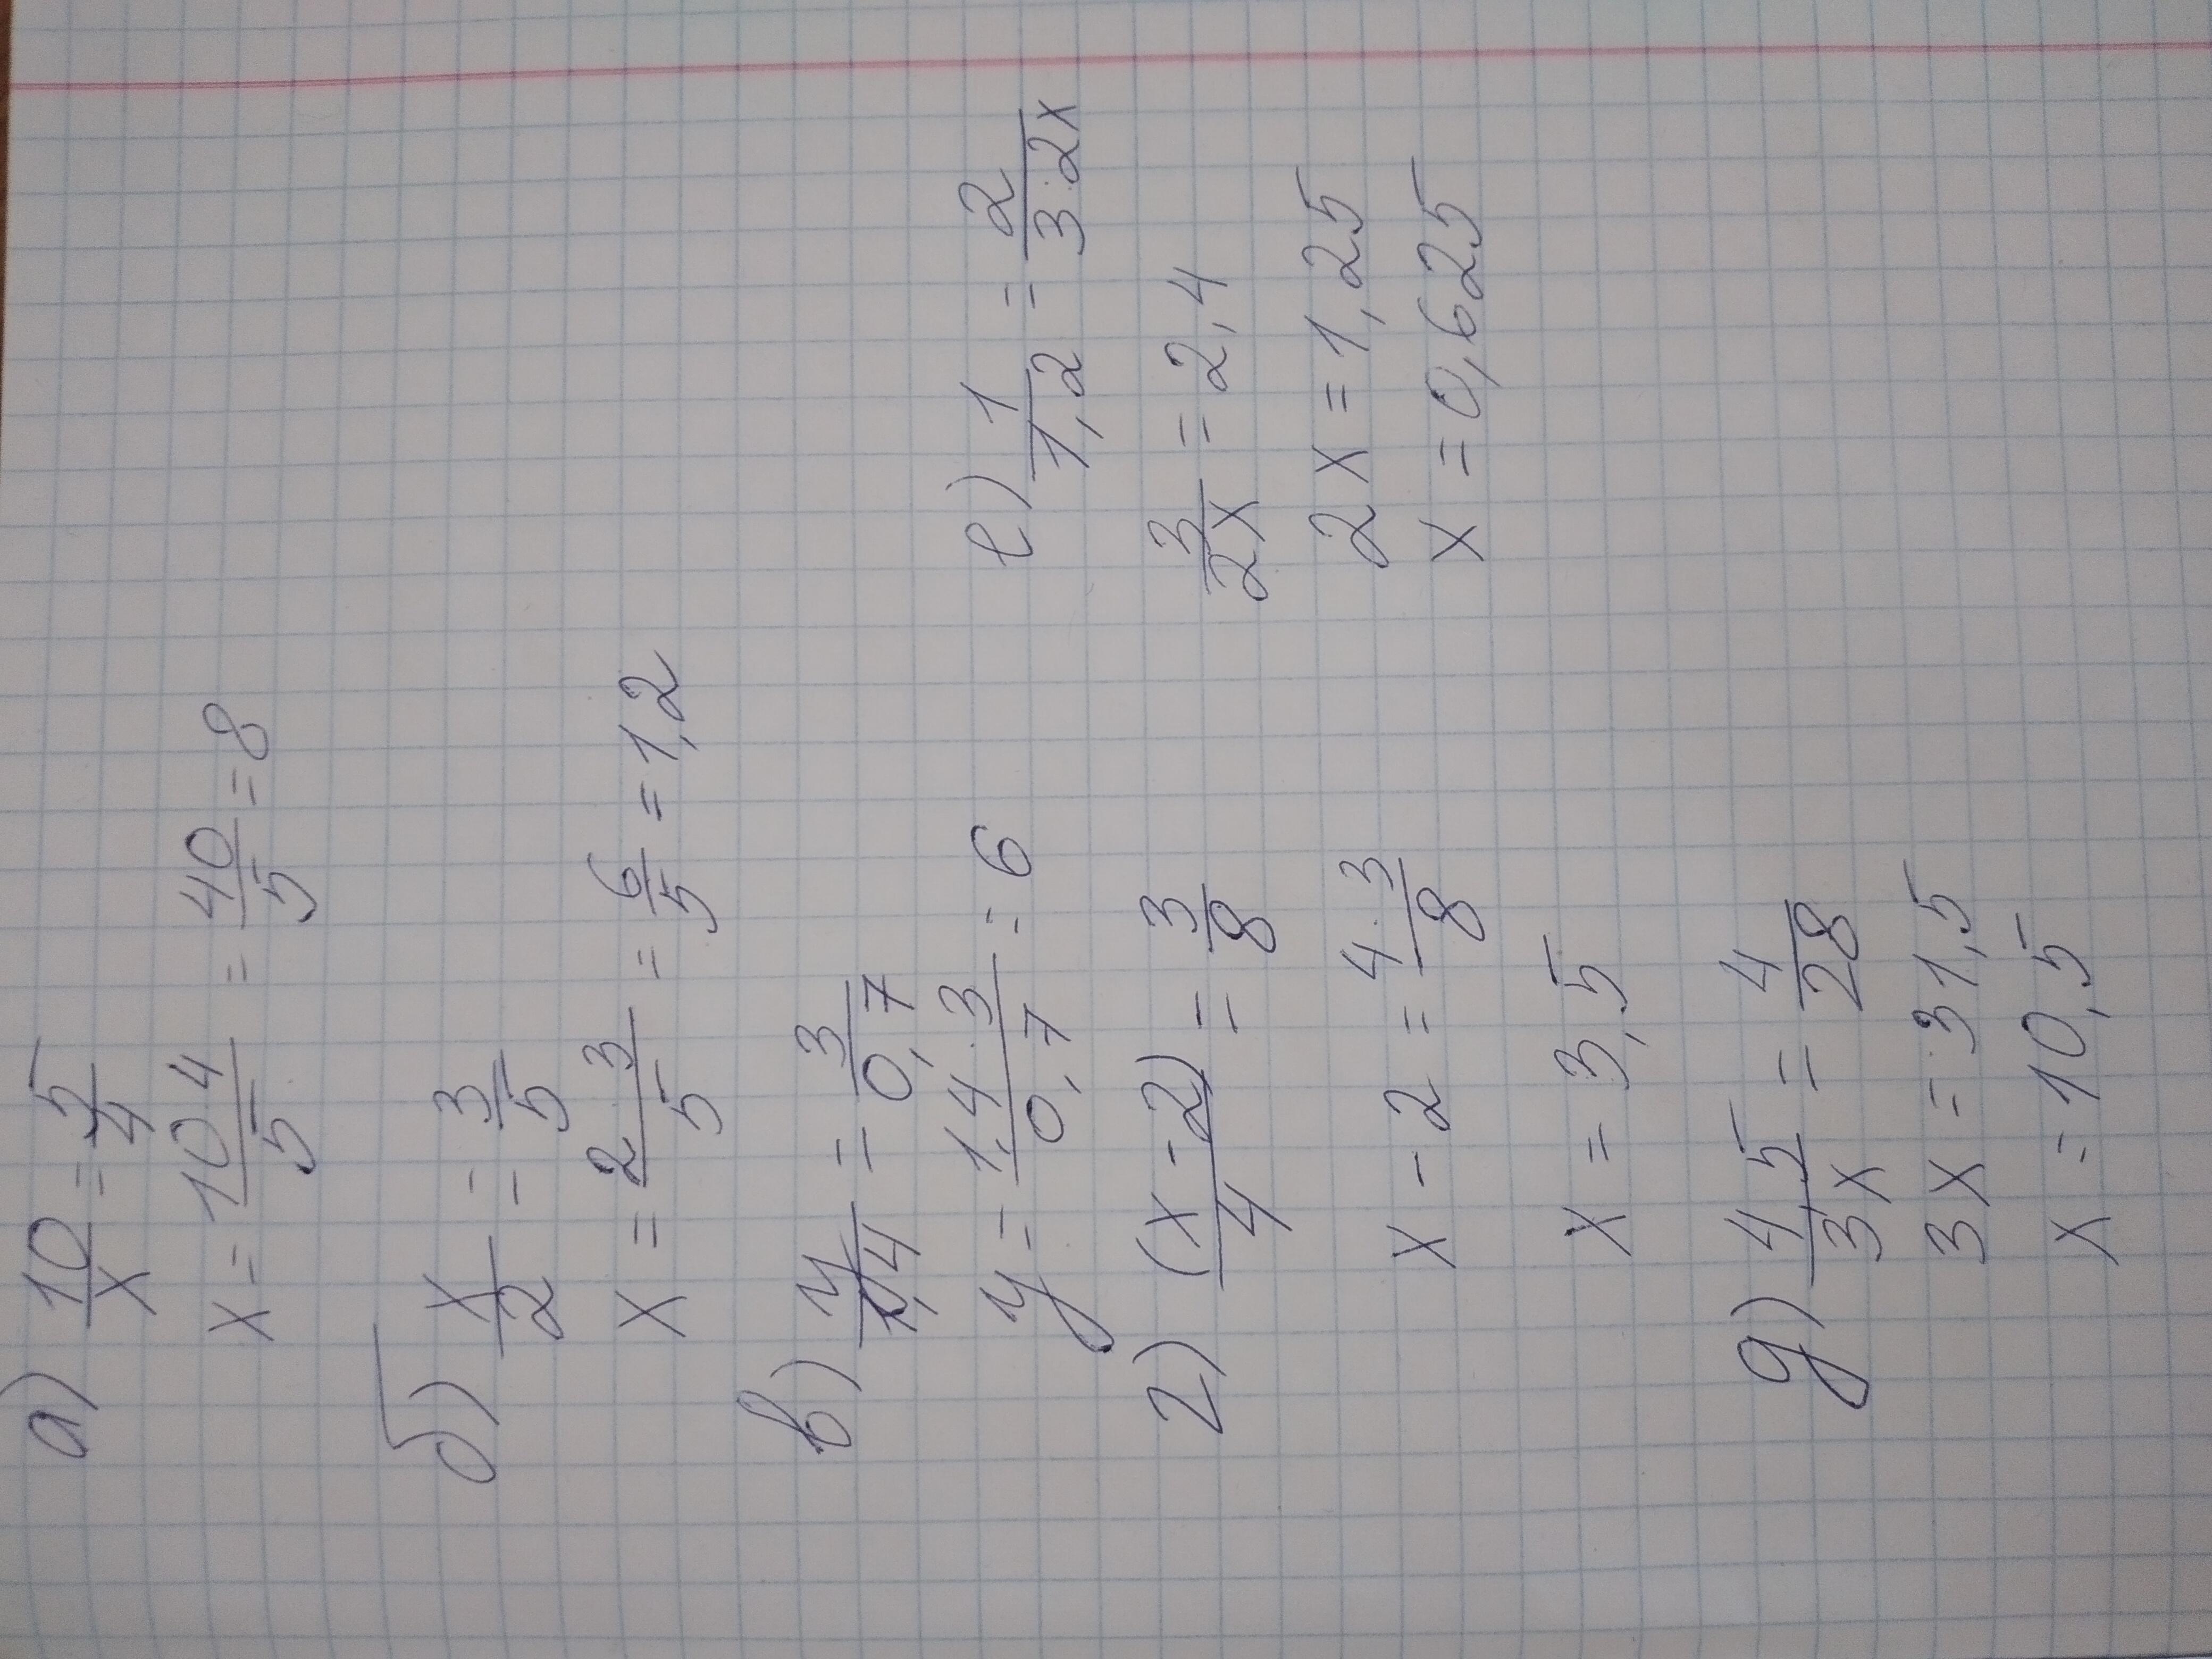 а) 10/x = 5/4
x = 10 4/5 = 40/5 = 8
б) x/2 = 3/5
x = 2 3/5 = 6/5 = 1,2
в) y/1,4 = 3/0,7
y = 1,4·3/0,7 = 6
г) (x-2)/4 = 3/8
x - 2 = 4·3/8
x = 3,5
д) 4 5/3x = 4/28
3x = 31,5
x = 10,5
е) 1/1,2 = 2/3·2x
3/2x = 2,4
2x = 1,25
x = 0,625